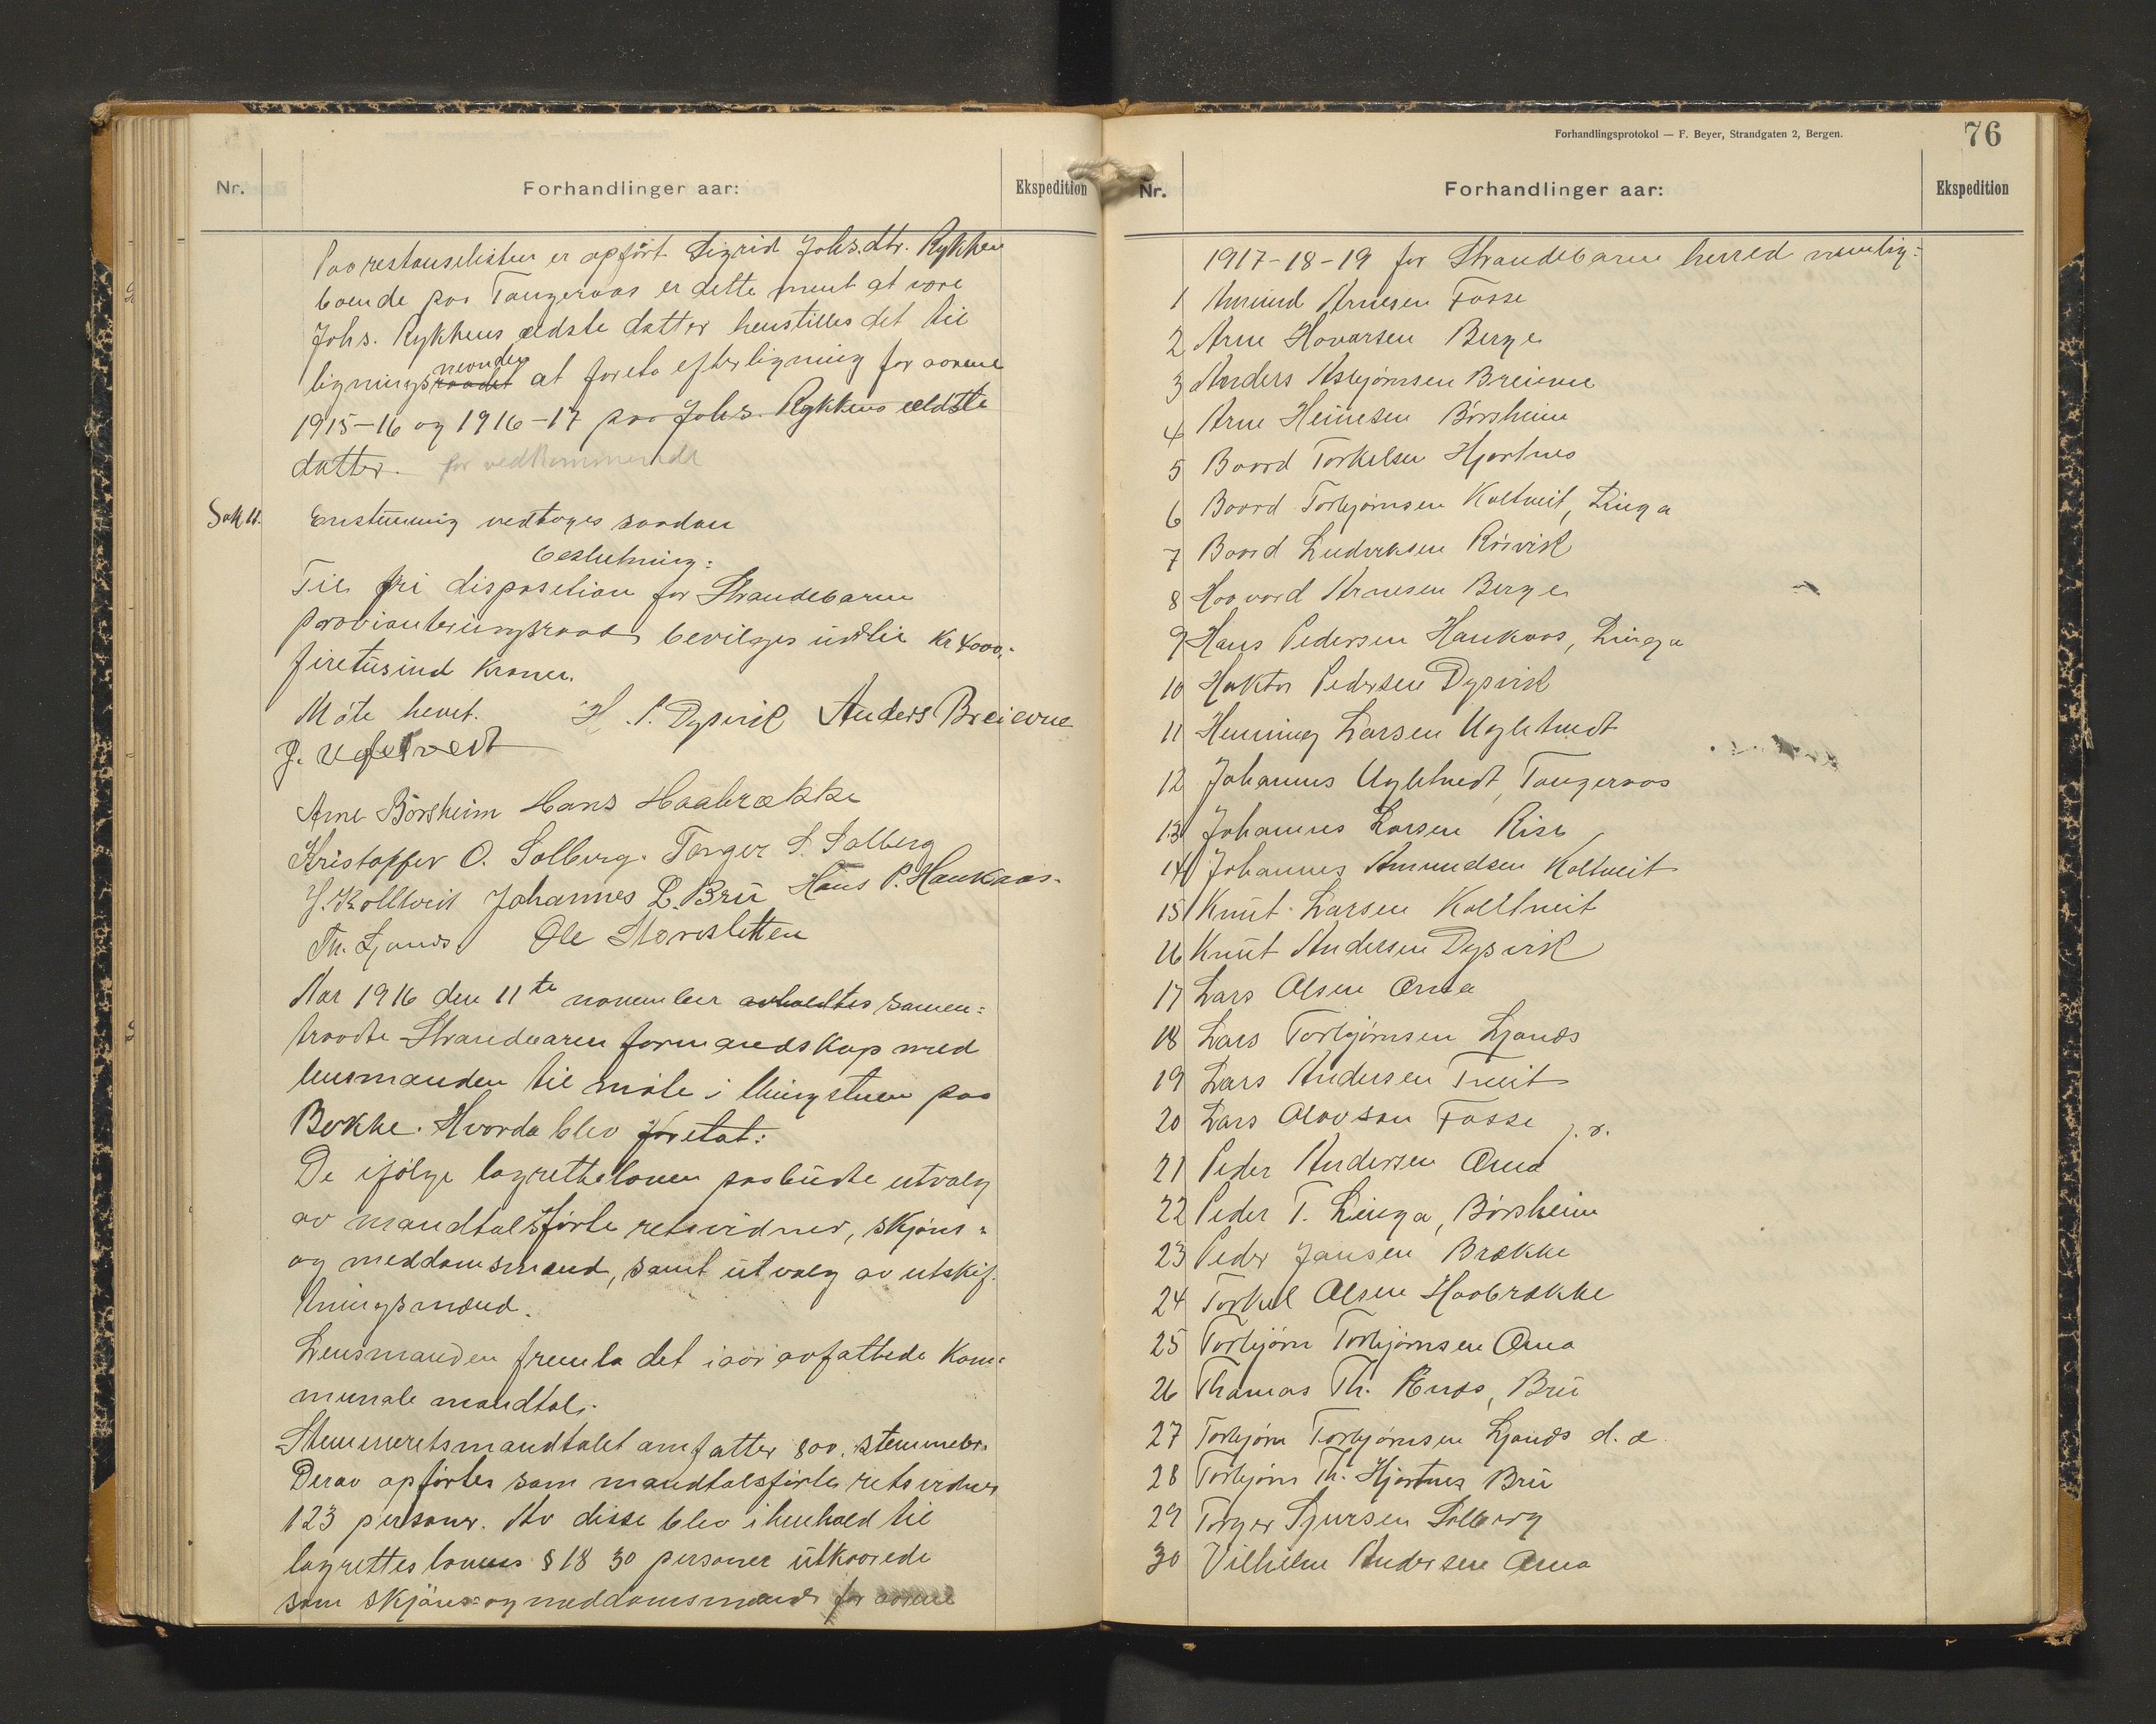 Nr.
Forhandlinger aar:
Ekspedition
Paa restanselisten er opført Sigrid Johs.dtr. Rykken
boende paa Tangeraas er dette ment at være
Johs. Rykkens ældste datter henstilles det til
nevnden
ligningsraadet at foreta efterligning for aarene
1915-16 og 1916-17 paa Johs. Rykkens ældste
datter. for vedkommende
Sak 11. Enstemmig vedtoges saadan
beslutning:
Til fri disposition for Strandebarm
provianteringsraad bevilges indtil kr 4000,-
firetusind kroner.
Møte hevet. H. P. Dysvik Anders Breievne
J. Ugletvedt
Arne Börsheim Hans Haabrække
Kristoffer O. Solberg. Torger S. Solberg
J. Koltveit Johannes L. Brü Hans P. Haukaas.
Th. Ljones Ole Storesletten
Aar 1916 den 11te november avholdtes samen=
traadte Strandebarm formandskap med
lensmanden til møte i thingstuen paa
Bakke. Hvorda blev foretat:
De ifølge lagrettheloven paabudte utvalg
av mandtalsførte retsvidner, skjøns=
og meddomsmænd, samt utvalg av utskif=
tningsmænd.
Lensmanden fremla det iaar avfattede kom=
munale mandtal.
Stemmeretsmandtalet omfatter 800. stemmeber.
Derav opførtes som mandtalsførte retsvidner
123 personer. Av disse blev i henhold til
lagretteslovens § 18 30 personer utkaarede
som skjøns- og meddomsmænd for aarene
Forhandlingsprotokol — F. Beyer, Strandgaten 2, Bergen.
76
Nr.
Forhandlinger aar:
Ekspedition
1917-18-19 for Strandebarm herred nemlig:
1 Amund Arnesen Fosse
2 Arne Hovarsen Berge
3 Anders Asbjørnsen Breievne
4 Arne Heinesen Börsheim
5 Baard Torkelsen Hjartnes
6 Baard Torbjørnsen Koltveit, Linga
7 Baard Ludvıksen Røsvik
8 Haavard Arnesen Berge
9 Hans Pedersen Haukaas, Linga
10 Haktor Pedersen Dysvik
11 Henning Larsen Ugletvedt
12 Johannes Ugletvedt, Tangeraas
13 Johannes Larsen Rise
14 Johannes Amundsen Koltveit
15 Knut Larsen Kolltveit
16 Knut Andersen Dysvik
17 Lars Olsen Oma
18 Lars Torbjørnsen Ljones
19 Lars Andersen Tveit
20 Lars Olavson Fosse j.r.
21 Peder Andersen Oma
22 Peder T. Linga, Börsheim
23 Peder Jansen Brække
24 Torkel Olsen Haabrække
25 Torbjørn Torbjørnsen Oma
26 Thomas Th. Brü
27 Torbjørn Torbjørnsen Ljones d. æ.
28 Torbjørn Th. Hjartnes Brü
29 Torger Sjursen Solberg
30 Vilhelm Andersen Oma